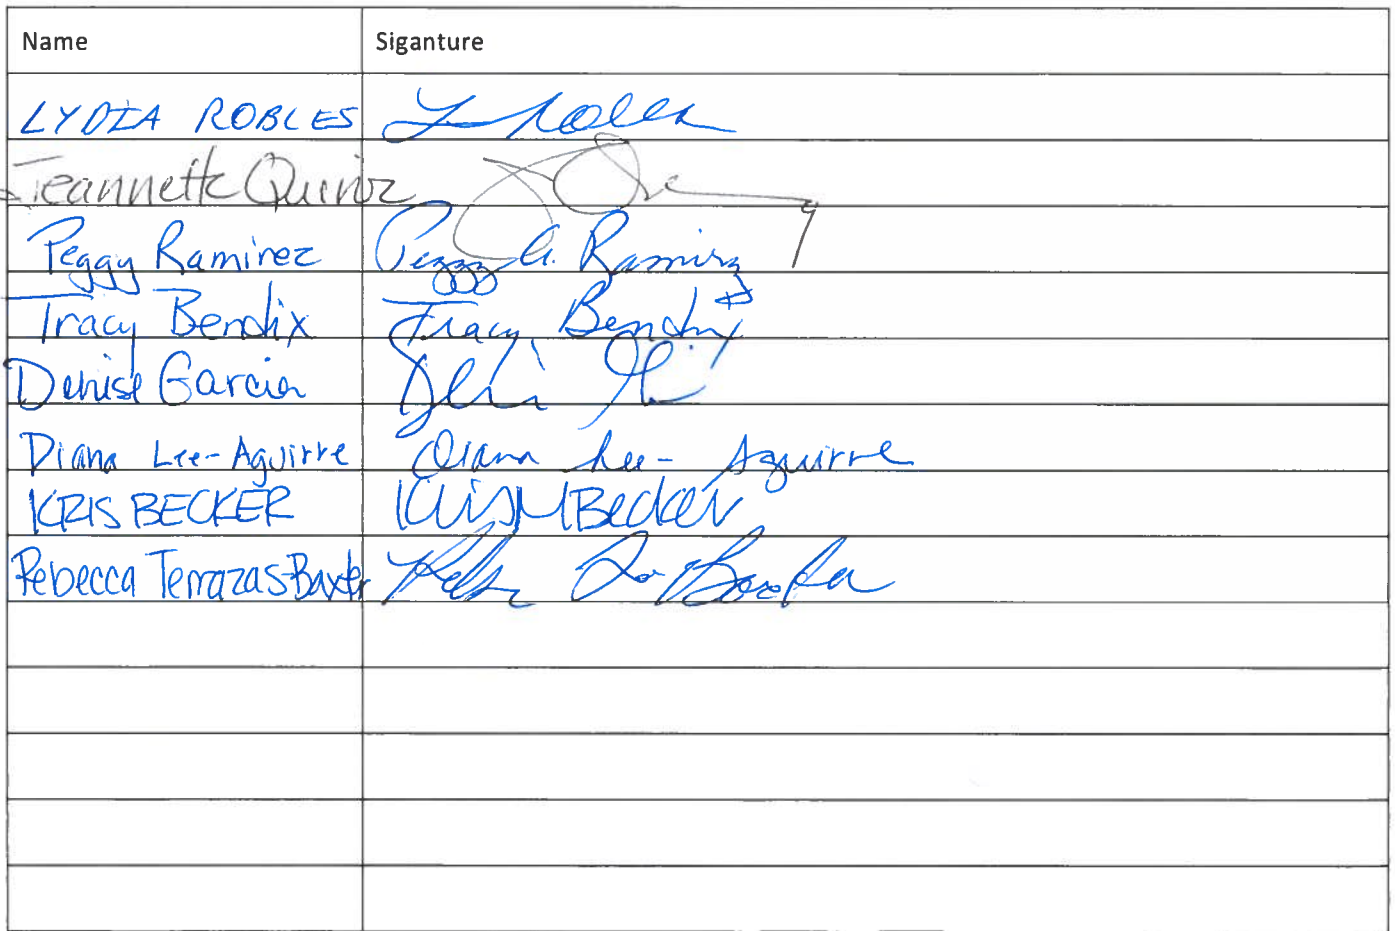 Name Siganture
LYDIA ROBLES
Jeannette Quiroz
Peggy Ramirez Peggy G. Ramirez
Tracy Bendix Tracy Bendix
Denise Garcia
Diana Lee-Aguirre Diana Lee- Aguirre
KRIS BECKER Kris M Becker
Rebecca Terrazas-Baxter